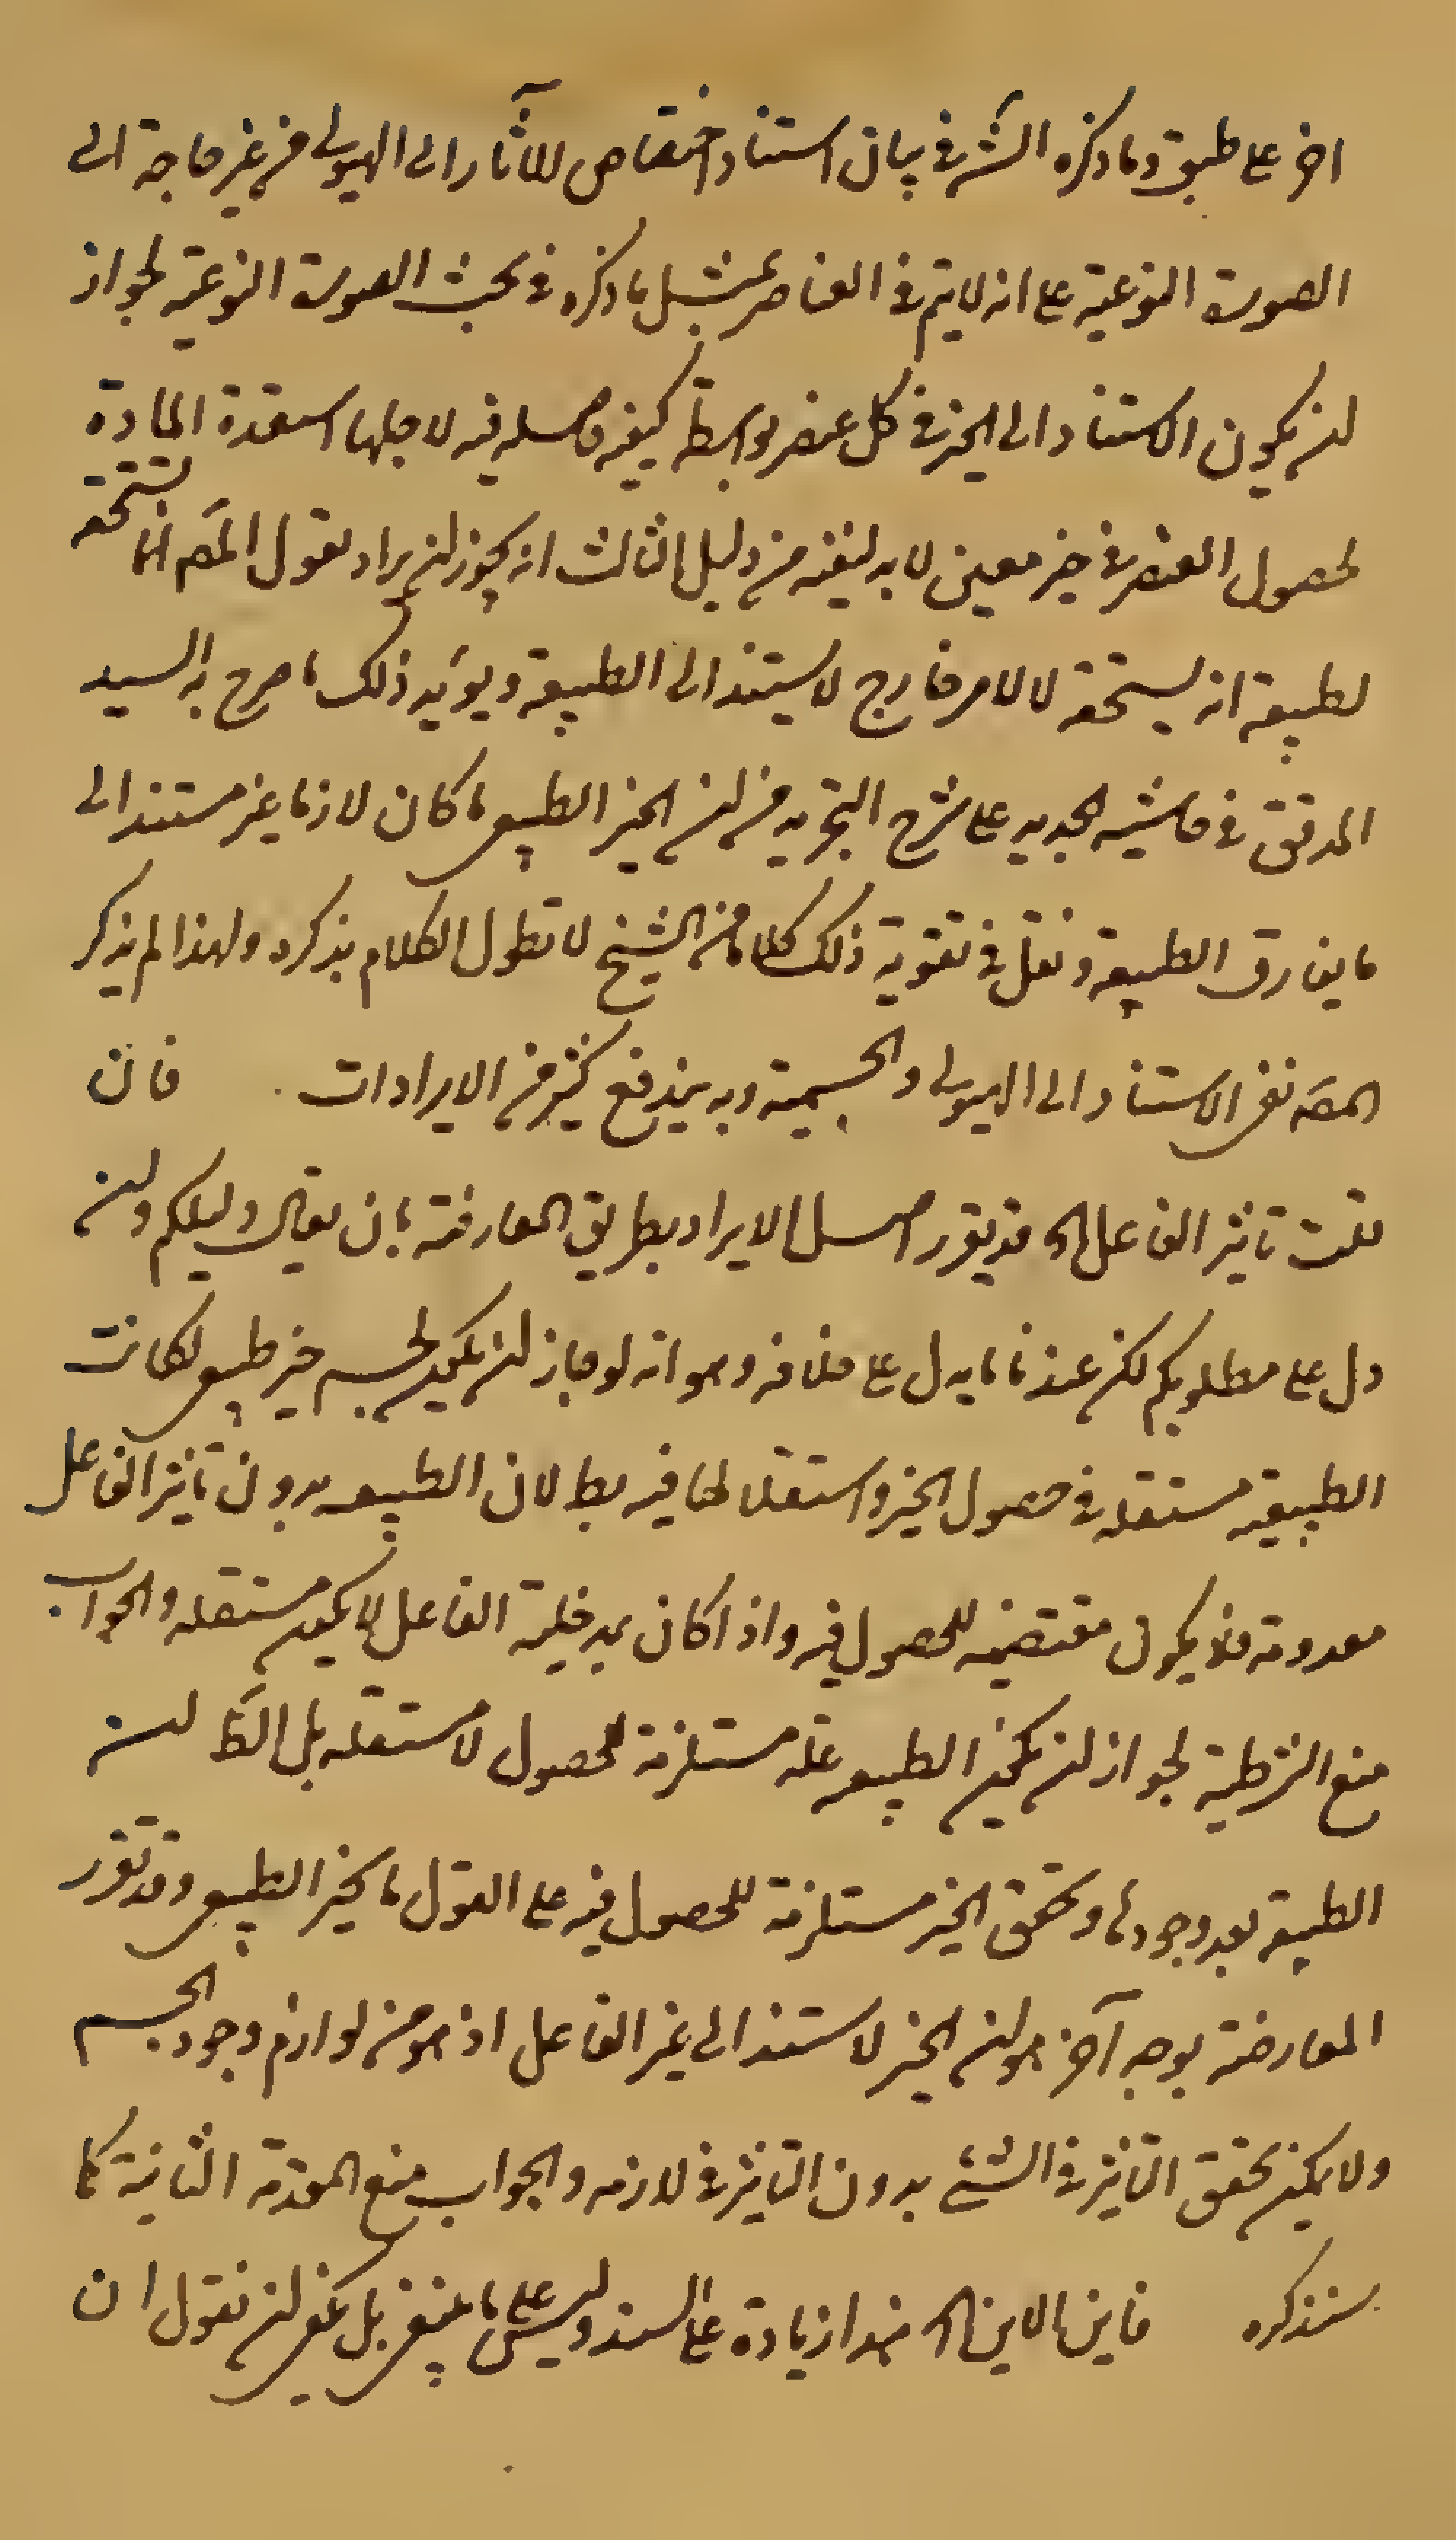 اخر على طبق وما ذكره الش في بيان استناد اختصاص الآثار الى الهيولى من غير حاجة الى
الصورة النوعية على انه لا يتم في العناصر بمثل ما ذكره في بحث الصورة النوعية لجواز
ان يكون الاستناد الى الحيز في كل عنصر بواسطة كيفية حاصلة فيه لاجلها استعدت المادة
لحصول العنصر في حيز معين لا بد لنفيه من دليل الثالث انه يجوز ان يراد بقول المص انما يستحقه
لطبيعة انه يستحقه لا لامر خارج لا يستند الى الطبيعة ويؤيد ذلك ما صرح به السيد
المدقق في حاشيته الجديد على شرح التجريد من ان الحيز الطبيعي ما كان لازما غير مستند الى
ما يفارق الطبيعة ونقل في تقوية ذلك كلاما من الشيخ لا نطول الكلام بذكره ولهذا لم يذكر
المص نفي الاستناد الى الهيولى والجسمية وبه يندفع كثير من الايرادات فان
قلت تاثير الفاعل الخ قد يقرر اصل الايراد بطريق المعارضة بان يقال دليلكم وان
دل على مطلوبكم لكن عندنا ما يدل على خلافه وهو انه لو جاز ان يكون لجسم حيز طبيعي لكانت
الطبيعة مستقلة في حصول الحيز واستقلالها فيه بط لان الطبيعة بدون تاثير الفاعل
معدومة فلا يكون مقتضية للحصول فيه واذا كان بمدخلية الفاعل لا يكون مستقلة والجواب
منع الشرطية لجواز ان يكون الطبيعة علة مستلزمة للحصول لا مستقلة بل الظ ان
الطبيعة بعد وجودها وتحقق الحيز مستلزمة للحصول فيه على القول بالحيز الطبيعي وقد تقرر
المعارضة بوجه آخر هو ان الحيز لا يستند الى غير الفاعل اذ هو من لوازم وجود الجسم
ولا يمكن تحقق التاثير في الشئ بدون التاثير في لازمه والجواب منع المقدمة الثانية كما
سنذكره فاين الاين الخ هذا زيادة على السند وليس على ما ينبغي بل يكفي ان نقول ان